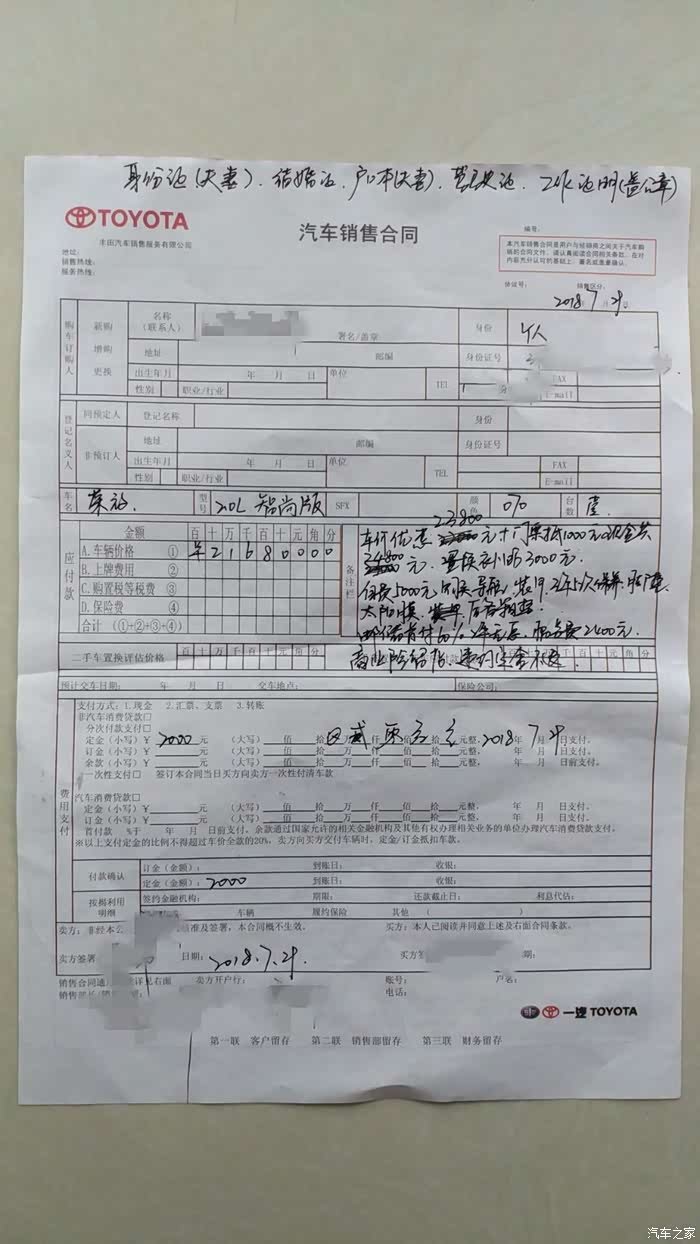 身份证(夫妻)、结婚证、户口本(夫妻)、营业执证、工作证明(盖公章)
TOYOTA
丰田汽车销售服务有限公司
汽车销售合同
编号:
地址:
销售热线:
服务热线:
本汽车销售合同是用户与经销商之间关于汽车购
销的合同文件。请认真阅读合同相关条款,在对
内容充分认可的基础上,署名或盖章确认。
协议号: 销售区分:
2018年7月29
购车订购人 新购 增购 更换 名称(联系人) 署名/盖章 身份 个人
地址 邮编 身份证号
出生年月 年 月 日 单位 TEL FAX
性别 职业/行业 E-mail
登记名义人 同预定人 非预订人 登记名称 身份
地址 邮编 身份证号
出生年月 年 月 日 单位 TEL FAX
性别 职业/行业 E-mail
车名 荣放 型号 2.0L 智尚版 SFX 颜色 台数 壹
应付款 金额 百 十 万 千 百 十 元 角 分
A.车辆价格 ① 2 1 6 8 0 0 0 0
B.上牌费用 ②
C.购置税等税费 ③
D.保险费 ④
合计 (①+②+③+④)
备注栏
车价优惠 23800 元+门票抵1000元现金共
24800 元. 置换补贴3000元.
太阳膜、
服务费2400元.
二手车置换评估价格 百 十 万 千 百 十 元 角 分
预计交车日期: 年 月 日 交车地点: 保险公司:
费用支付
支付方式:1.现金 2.汇票、支票 3.转账
非汽车消费贷款□
分次付款支付□
定金(小写)¥ 2000 元 (大写) 佰 拾 万 仟 佰 拾 元整, 2018 年 7 月 29 日支付。
订金(小写)¥ 元 (大写) 佰 拾 万 仟 佰 拾 元整, 年 月 日支付。
余款(小写)¥ 元 (大写) 佰 拾 万 仟 佰 拾 元整, 年 月 日前支付。
一次性支付□ 签订本合同当日买方向卖方一次性付清车款
汽车消费贷款□
定金(小写)¥ 元 (大写) 佰 拾 万 仟 佰 拾 元整, 年 月 日支付。
订金(小写)¥ 元 (大写) 佰 拾 万 仟 佰 拾 元整, 年 月 日支付。
首付款 %于 年 月 日前支付,余款通过国家允许的相关金融机构及其他有权办理相关业务的单位办理汽车消费贷款支付。
※以上支付定金的比例不得超过车价全款的20%,卖方向买方交付车辆时,定金/订金抵扣车款。
付款确认 订金(金额): 到账日: 收银:
定金(金额): 2000 到账日: 收银:
按揭利用明细 签约金融机构: 期限: 还款截止日: 利息代估:
车辆 履约保险 其他 ( )
卖方:非经本公 核准及签署,本合同概不生效。 买方:本人已阅读并同意上述及右面合同条款。
卖方签署 日期: 2018.7.29. 买方签 期:
销售合同通 详见右面 卖方开户行: 账号: 户名:
销售部长 电话:
一汽 TOYOTA
第一联 客户留存 第二联 销售部留存 第三联 财务留存
汽车之家